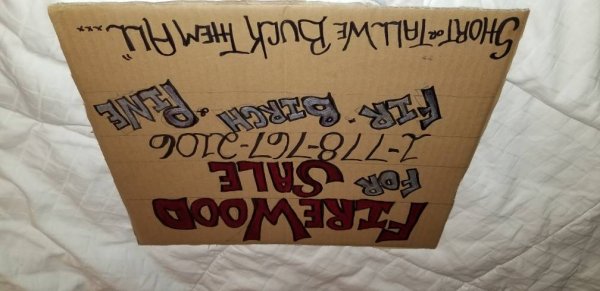 FIREWOOD
FOR SALE
1-778-767-2106
FIR · BIRCH & PINE
"SHORT OR TALL WE BUCK THEM ALL"....